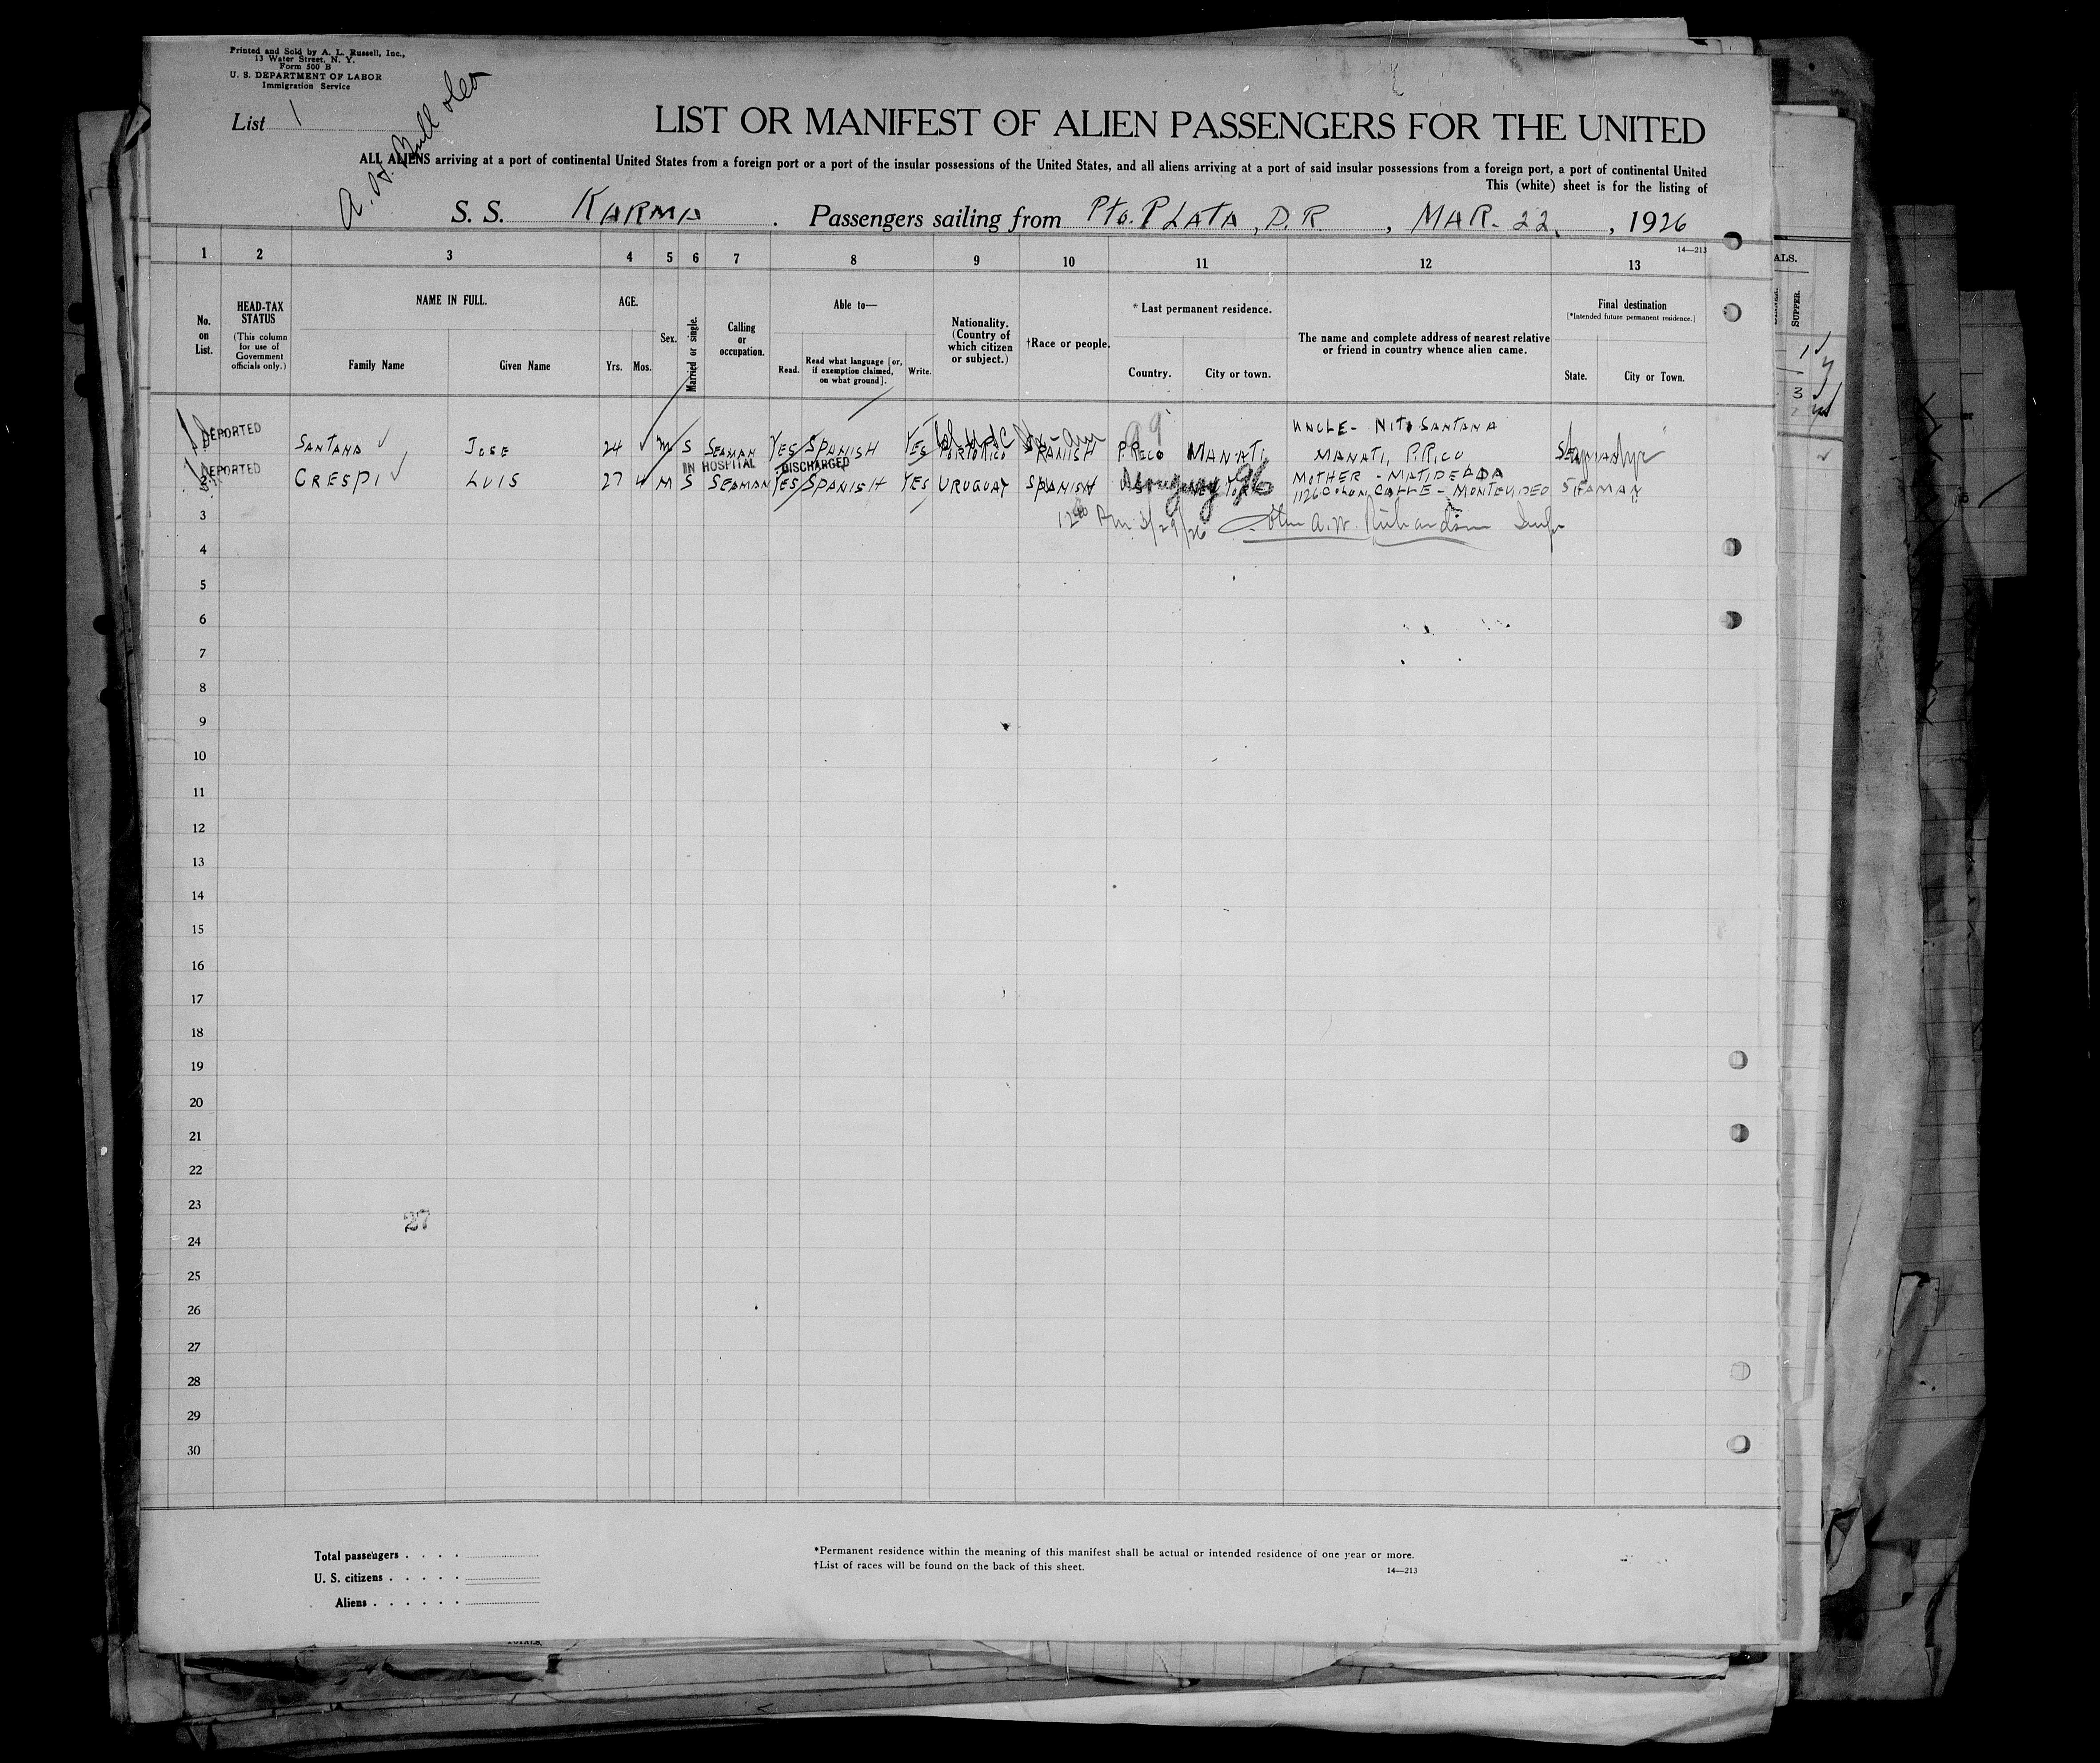 Printed and Sold by A. L. Russell, Inc.,
13 Water Street, N. Y.
Form 500 B
U. S. DEPARTMENT OF LABOR
Immigration Service
List 1
A. H. Bull
LIST OR MANIFEST OF ALIEN PASSENGERS FOR THE UNITED
ALL ALIENS arriving at a port of continental United States from a foreign port or a port of the insular possessions of the United States, and all aliens arriving at a port of said insular possessions from a foreign port, a port of continental United
This (white) sheet is for the listing of
S. S. KARMA. Passengers sailing from Pto. PLATA, D.R., MAR. 22, 1926
14—213
1 2 3 4 5 6 7 8 9 10 11 12 13
No. on List.
HEAD-TAX STATUS
(This column for use of Government officials only.)
NAME IN FULL.
Family Name
Given Name
AGE.
Yrs. Mos.
Sex.
Married or single.
Calling or occupation.
Able to—
Read.
Read what language [or, if exemption claimed, on what ground].
Write.
Nationality. (Country of which citizen or subject.)
†Race or people.
* Last permanent residence.
Country.
City or town.
The name and complete address of nearest relative or friend in country whence alien came.
Final destination
[*Intended future permanent residence.]
State.
City or Town.
ALS.
SUPPER.
UNCLE - NITO SANTANA
DEPORTED SANTANA JOSE 24 M S SEAMAN YES SPANISH YES PORTO RICO SPANISH P.RICO MANATI, MANATI, P.RICO
IN HOSPITAL DISCHARGED
MOTHER - MATIDE
DEPORTED CRESPI LUIS 27 4 M S SEAMAN YES SPANISH YES URUGUAY SPANISH Uruguay 96 1126 COLON CALLE - MONTEVIDEO SEAMAN
3 3/29/26 A. W. Richardson
4
5
6
7
8
9
10
11
12
13
14
15
16
17
18
19
20
21
22
23
27
24
25
26
27
28
29
30
Total passengers
U. S. citizens
Aliens
*Permanent residence within the meaning of this manifest shall be actual or intended residence of one year or more.
†List of races will be found on the back of this sheet.
14—213